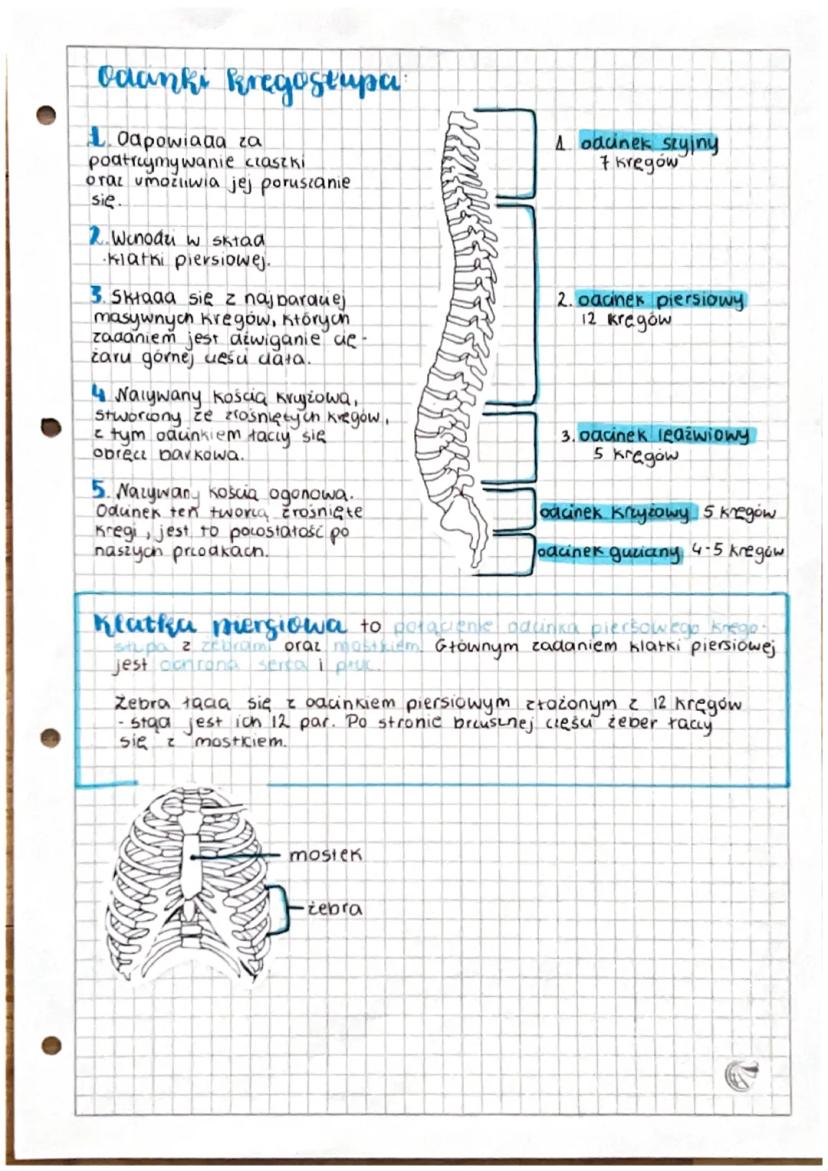 Odcinki kręgosłupa:
1. Odpowiada za
podtrzymywanie czaszki
oraz umożliwia jej poruszanie
się.
2. Wchodzi w skład
klatki piersiowej.
3. Składa się z najbardziej
masywnych kręgów, których
zadaniem jest dźwiganie cię-
żaru górnej części ciała.
4. Nazywany kością krzyżową,
stworzony ze zrośniętych kręgów,
z tym odcinkiem łączy się
obręcz barkowa.
5. Nazywany kością ogonową.
Odcinek ten tworzą zrośnięte
kręgi, jest to pozostałość po
naszych przodkach.
1. odcinek szyjny
7 kręgów
2. odcinek piersiowy
12 kręgów
3. odcinek lędźwiowy
5 kręgów
odcinek krzyżowy 5 kręgów
odcinek guziczny 4-5 kręgów
Klatka piersiowa to połączenie odcinka piersowego kręgo-
słupa z żebrami oraz mostkiem. Głównym zadaniem klatki piersiowej
jest ochrona serca i płuc.
Żebra łączą się z odcinkiem piersiowym złożonym z 12 kręgów
- stąd jest ich 12 par. Po stronie brzusznej części żeber łączy
się z mostkiem.
mostek
żebra